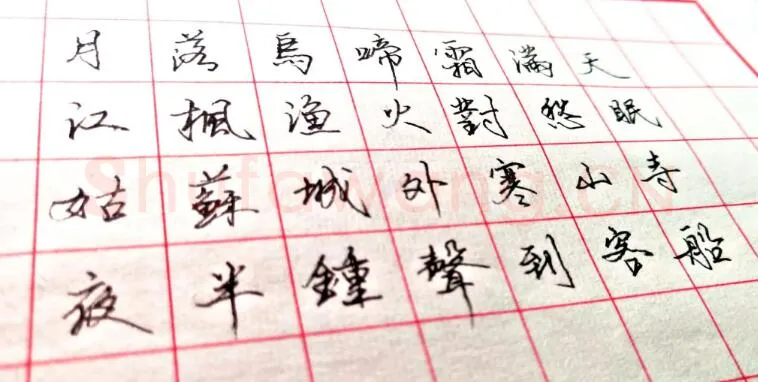 月落烏啼霜滿天
江楓漁火對愁眠
姑蘇城外寒山寺
夜半鍾聲到客船
Shufawang.CN